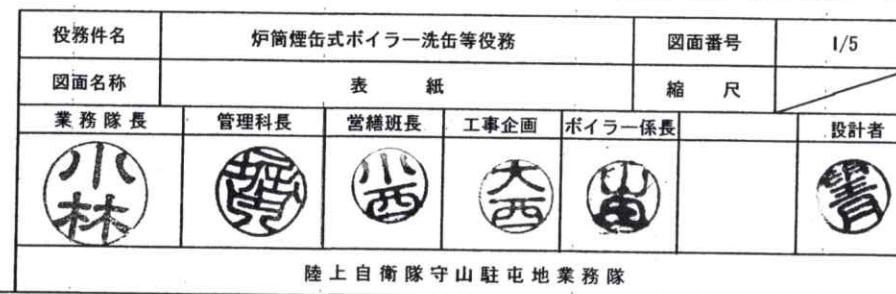 役務件名 炉筒煙缶式ボイラー洗缶等役務 図面番号 1/5
図面名称 表紙 縮尺
業務隊長 管理科長 営繕班長 工事企画 ボイラー係長 設計者
小林 小西 大西
陸上自衛隊守山駐屯地業務隊